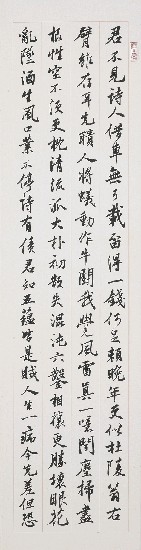 君不見詩人借車無可載留得一錢何足賴晚年更似杜陵翁右
臂雖存耳先聵人將蟻動作牛鬭我覺風雷真一噫聞塵掃盡
根性空不須更枕清流派大朴初散失混沌六鑿相攘更勝壞眼花
亂墜酒生風口業不停詩有債君知五蘊皆是賊人生一病今先差但恐